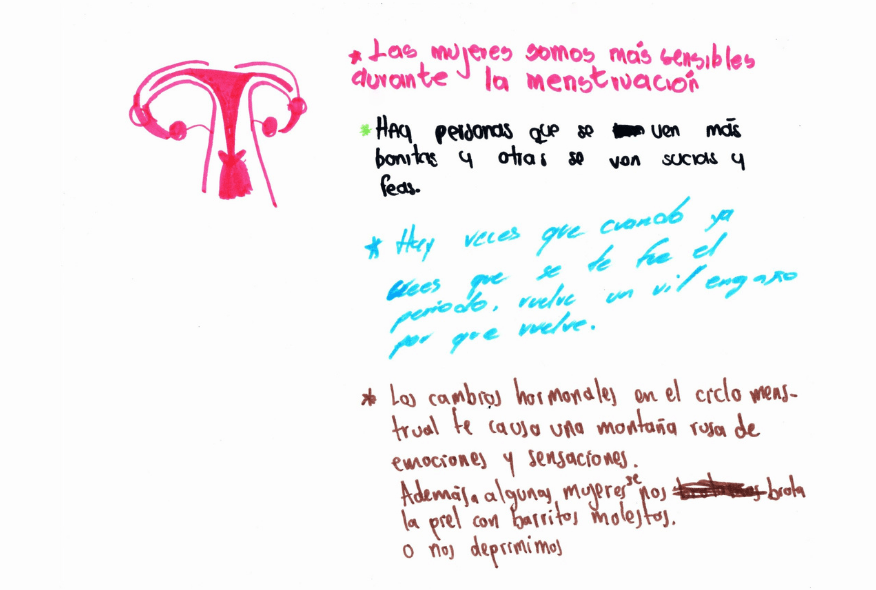 * Las mujeres somos más sensibles
durante la menstruación
* Hay personas que se ven más
bonitas y otras se ven sucias y
feas.
* Hay veces que cuando ya
crees que se te fue el
periodo, vuelve un vil engaño
por que vuelve.
* Los cambios hormonales en el ciclo mens-
trual te causa una montaña rusa de
emociones y sensaciones.
Además a algunas mujeres se nos brota
la piel con barritos molestos.
o nos deprimimos